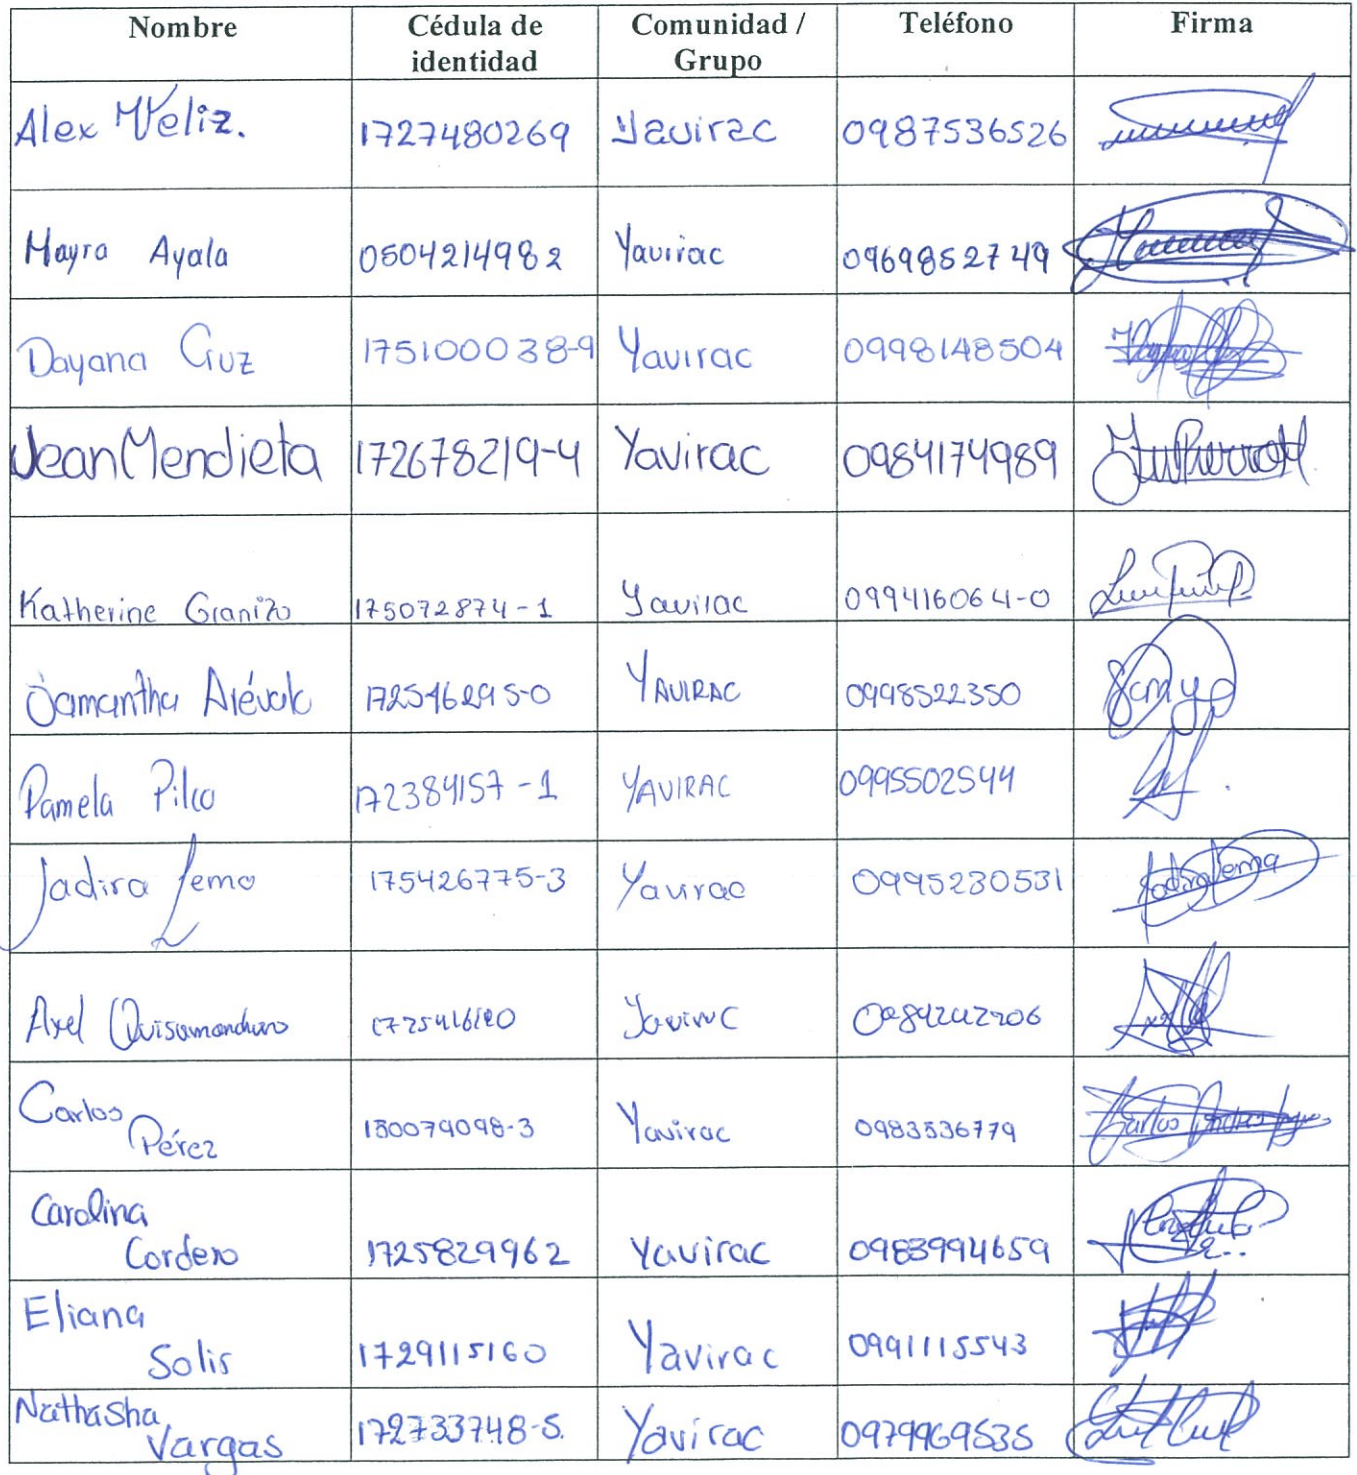 Nombre Cédula de identidad Comunidad / Grupo Teléfono Firma
Alex Veliz. 1727480269 Yavirac 0987536526
Mayra Ayala 0504214982 Yavirac 0969852749
Dayana Cruz 175100038-9 Yavirac 0998148504
Jean Mendieta 172678219-4 Yavirac 0984174989
Katherine Granizo 175072874-1 Yavirac 099416064-0
Samantha Arévalo 172546295-0 YAVIRAC 0998522350
Pamela Pilco 172384157-1 YAVIRAC 0995502544
Jadira Lema 175426775-3 Yavirac 0995230531 Jadira Lema
Axel Quisamanduro Yavirac
Carlos Pérez 180079098-3 Yavirac 0983536779 Carlos
Carolina Cordero 1725829962 Yavirac 0983994659
Eliana Solis 1729115160 Yavirac 0991115543
Nathasha Vargas 172733748-5. Yavirac 0979969535